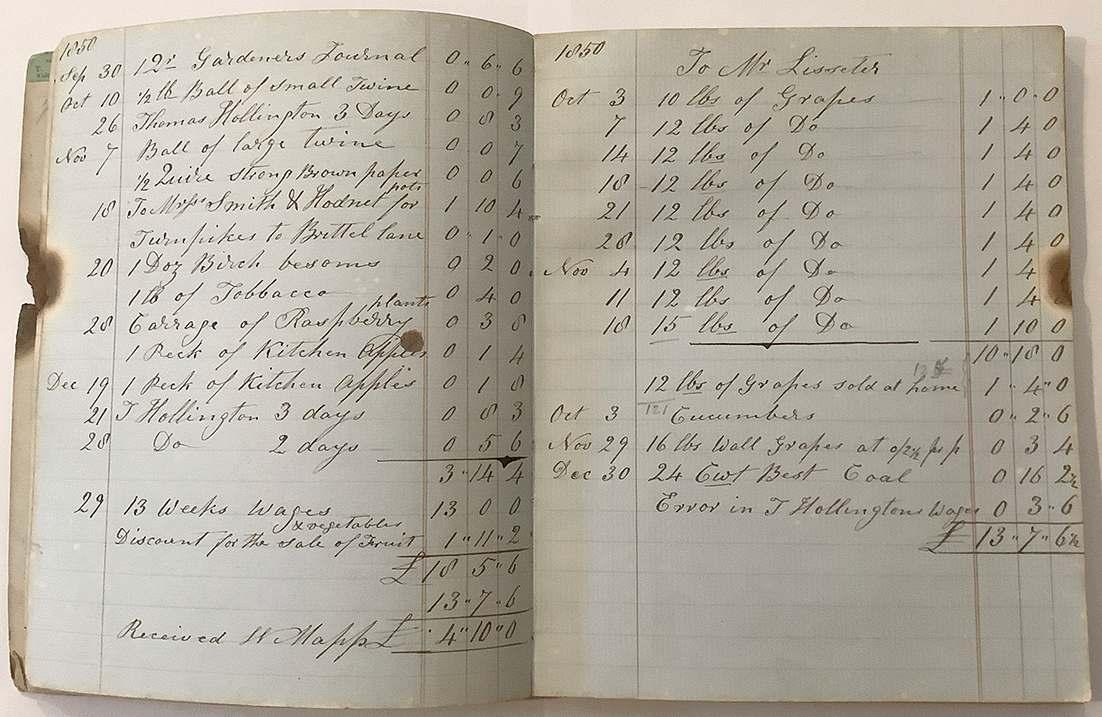 1850
Sep 30 1 Qr Gardeners Journal 0 " 6 " 6
Oct 10 ½ lb Ball of small Twine 0 0 " 9
26 Thomas Hollington 3 Days 0 8 3
Nov 7 Ball of large twine 0 0 7
½ Quire strong Brown paper 0 0 6
pots
18 To Mrss Smith & Hodnet for 1 10 4
Turnpikes to Brettel lane 0 " 1 " 0
20 1 Doz Birch besoms 0 2 0
1 lb of Tobbacco 0 4 0
plants
28 Carrage of Raspberry 0 3 8
1 Peck of Kitchen Apples 0 1 4
Dec 19 1 Peck of Kitchen apples 0 1 8
21 T Hollington 3 days 0 8 3
28 Do 2 days 0 5 6
3 " 14 4
29 13 Weeks Wages 13 0 0
& vegetables
Discount for the sale of Fruit 1 " 11 " 2
£ 18 5 " 6
13 " 7 " 6
Received W Mapp £ 4 " 10 " 0
1850
To Mr Lisseter
Oct 3 10 lbs of Grapes 1 " 0 " 0
7 12 lbs of Do 1 4 0
14 12 lbs of Do 1 4 0
18 12 lbs of Do 1 4 0
21 12 lbs of Do 1 4 0
28 12 lbs of Do 1 4 0
Nov 4 12 lbs of Do 1 4
11 12 lbs of Do 1 4
18 15 lbs of Do 1 10 0
10 " 18 0
12 lbs of Grapes sold at home 1 " 4 " 0
121
Oct 3 Cucumbers 0 " 2 " 6
Nov 29 16 lbs Wall Grapes at 0/2½ 0 3 4
Dec 30 24 Cwt Best Coal 0 16 2½
Error in T Hollingtons Wages 0 3 " 6
£ 13 " 7 " 6½